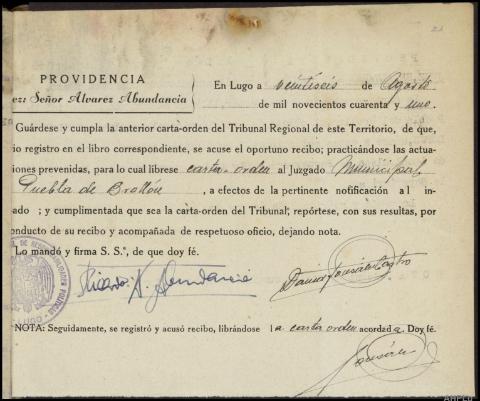 PROVIDENCIA
ez: Señor Alvarez Abundancia
En Lugo a veintiseis de Agosto
de mil novecientos cuarenta y uno.
Guárdese y cumpla la anterior carta-orden del Tribunal Regional de este Territorio, de que,
io registro en el libro correspondiente, se acuse el oportuno recibo; practicándose las actua-
iones prevenidas, para lo cual líbrese carta-orden al Juzgado Municipal
Puebla de Brollón, a efectos de la pertinente notificación al in-
ado ; y cumplimentada que sea la carta-orden del Tribunal, repórtese, con sus resultas, por
onducto de su recibo y acompañada de respetuoso oficio, dejando nota.
Lo mandó y firma S. S.ª, de que doy fé.
Ricardo A. Abundancia
González Castro
NOTA: Seguidamente, se registró y acusó recibo, librándose la carta orden acordada. Doy fé.
González